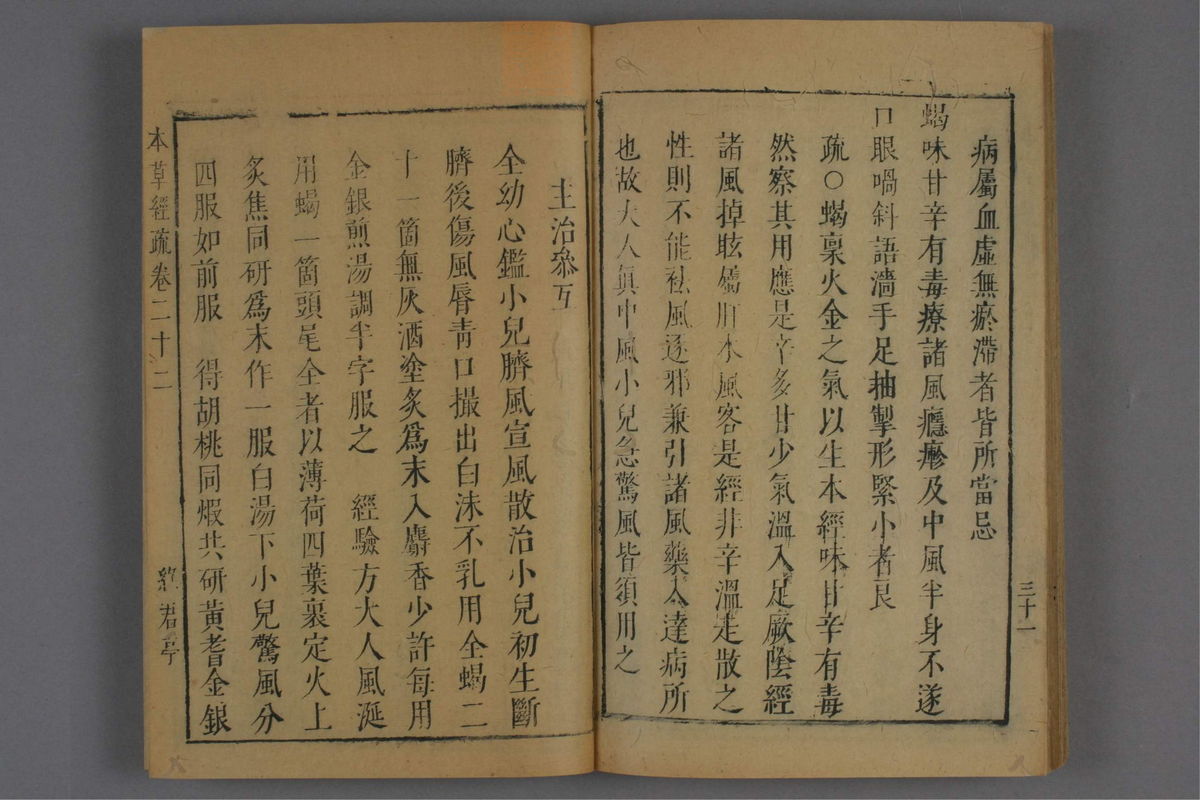 病屬血虛無瘀滯者皆所當忌
蝎味甘辛有毒療諸風癮瘮及中風半身不遂
口眼喎斜語濇手足抽掣形緊小者良
疏○蝎稟火金之氣以生本經味甘辛有毒
然察其用應是辛多甘少氣溫入足厥陰經
諸風掉眩屬肝木風客是經非辛溫走散之
性則不能袪風逐邪兼引諸風藥入達病所
也故大人眞中風小兒急驚風皆須用之
三十一
主治叅互
全幼心鑑小兒臍風宣風散治小兒初生斷
臍後傷風唇青口撮出白沫不乳用全蝎二
十一箇無灰酒塗炙爲末入麝香少許每用
金銀煎湯調半字服之　經驗方大人風涎
用蝎一箇頭尾全者以薄荷四葉裹定火上
炙焦同研爲末作一服白湯下小兒驚風分
四服如前服　得胡桃同煅共研黃耆金銀
本草經疏卷二十二
綠君亭